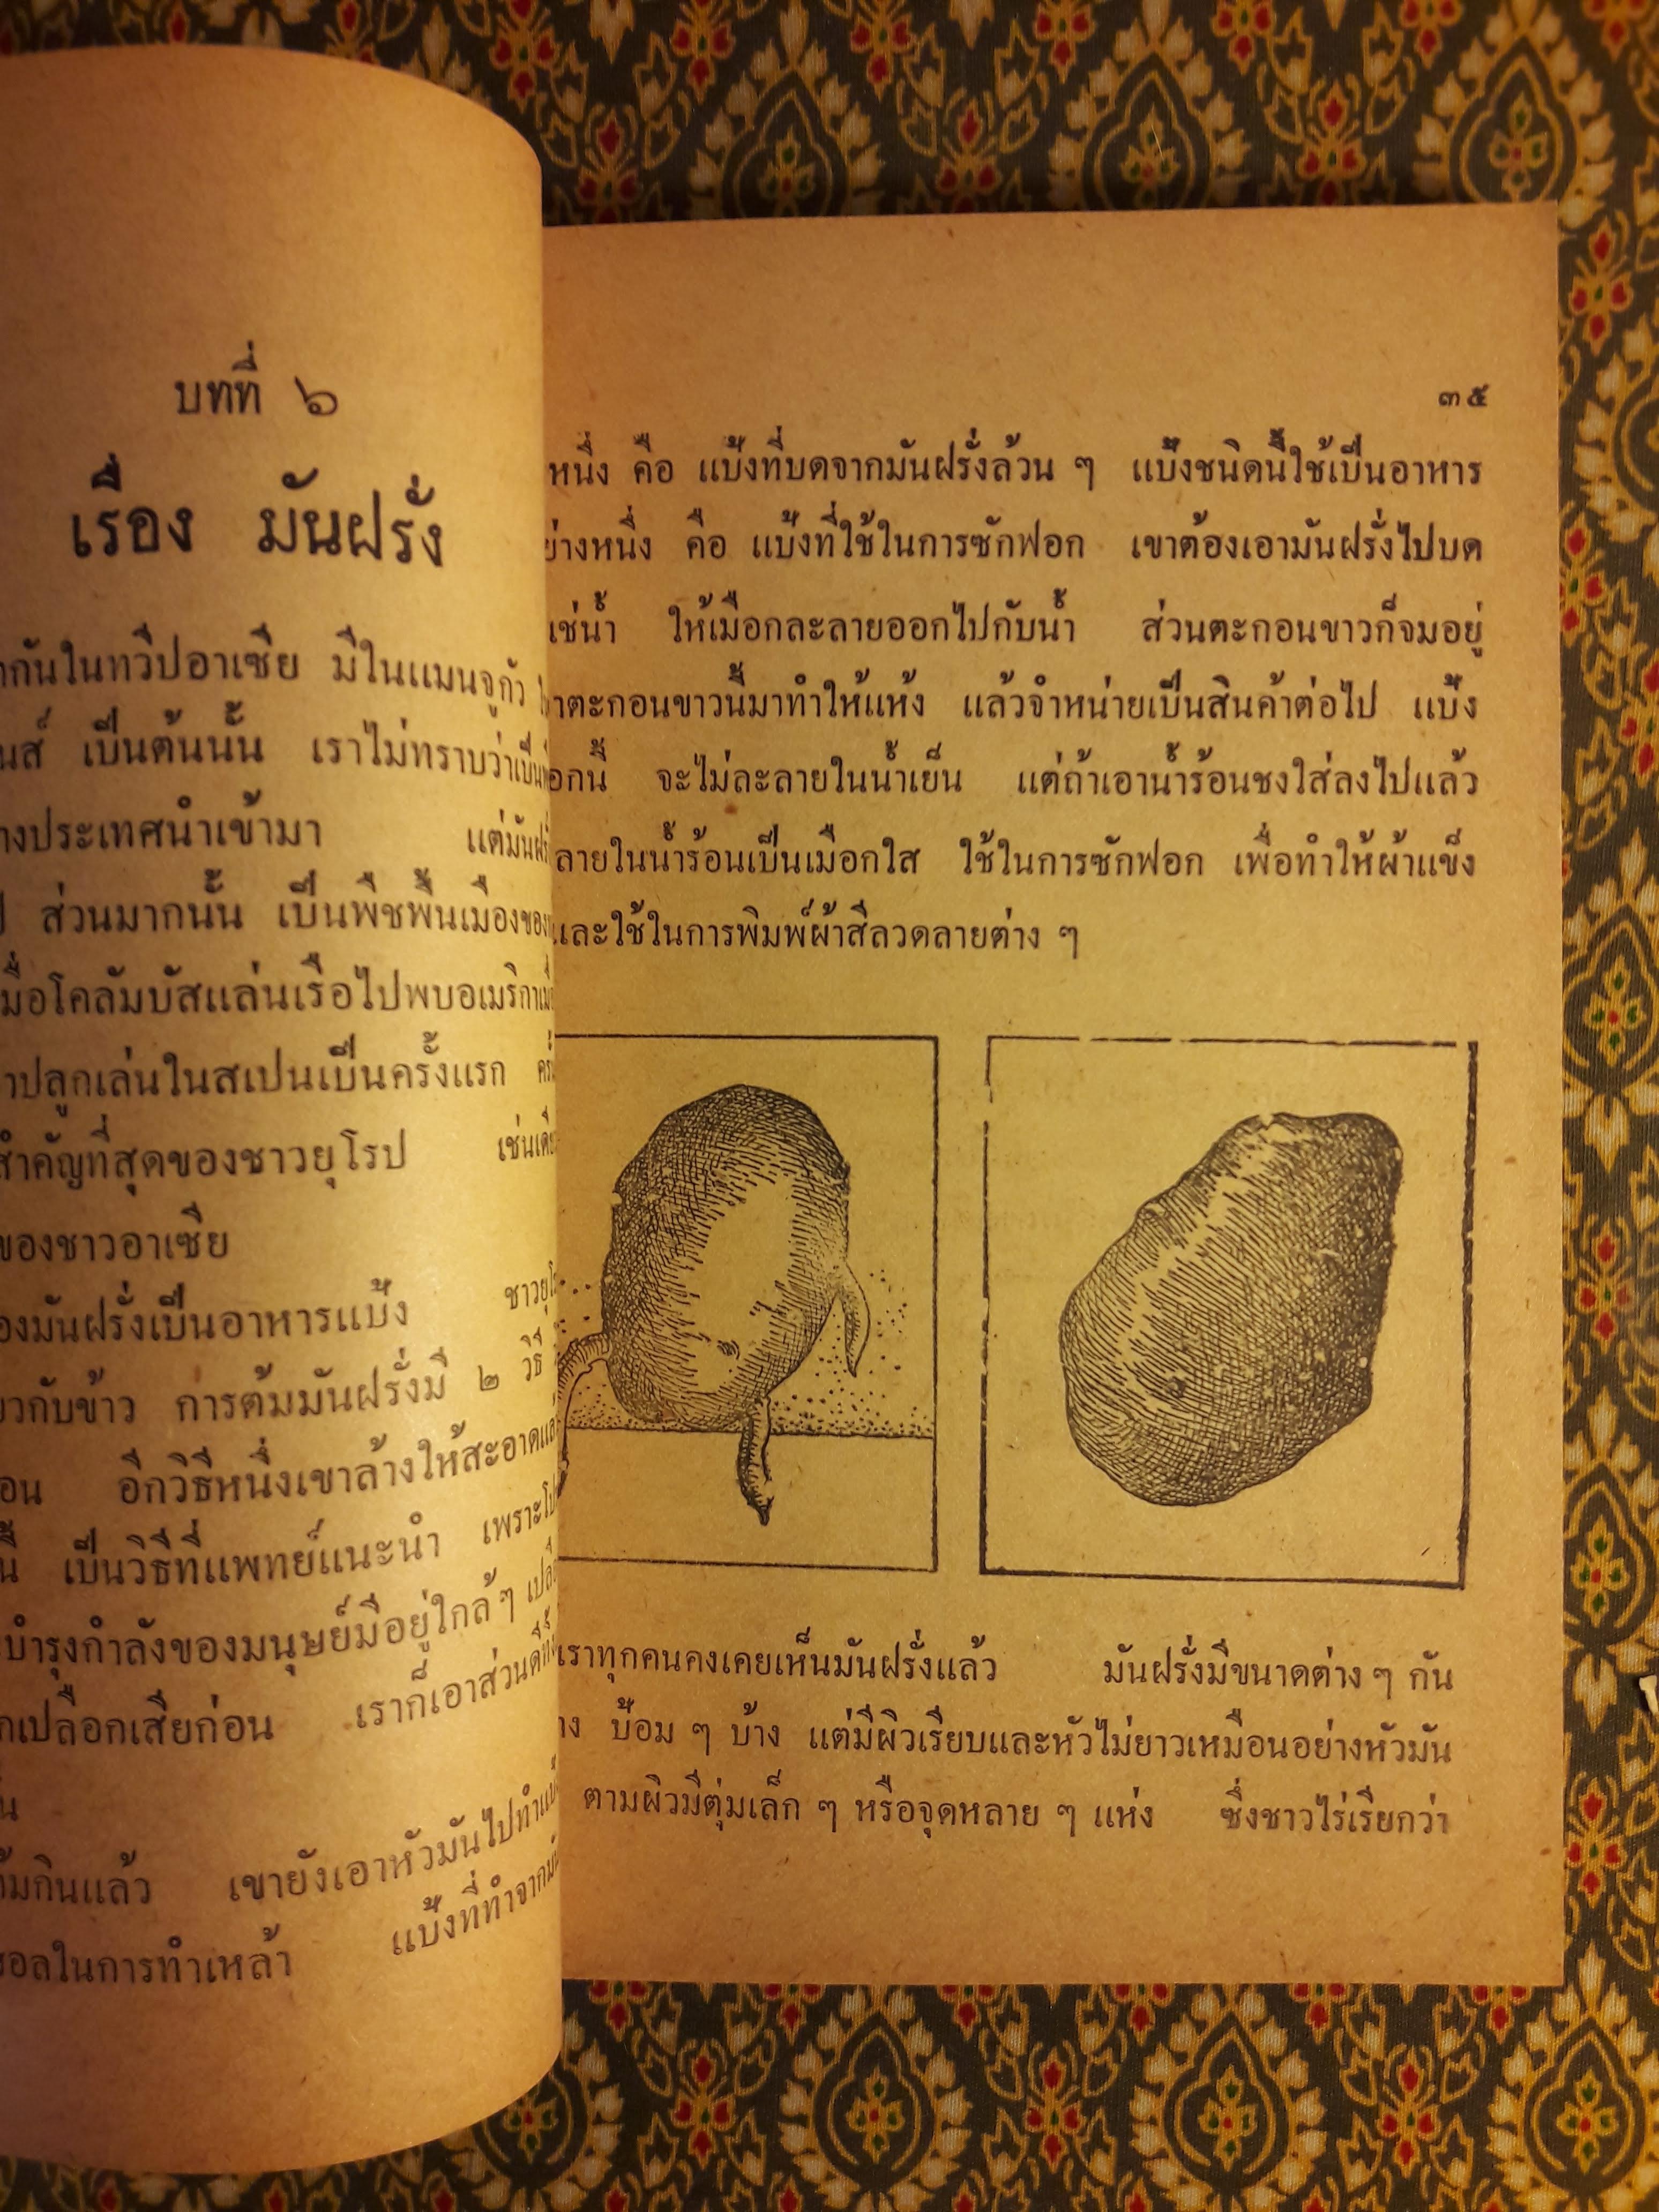 บทที่ ๖
เรื่อง มันฝรั่ง
กันในทวีปอาเซีย มีในแมนจูกัว
เป็นต้นนั้น เราไม่ทราบว่าเป็น
างประเทศนำเข้ามา แต่มันฝรั่
ส่วนมากนั้น เป็นพืชพื้นเมืองของ
มื่อโคลัมบัสแล่นเรือไปพบอเมริกา
าปลูกเล่นในสเปนเป็นครั้งแรก
สำคัญที่สุดของชาวยุโรป
ของชาวอาเซีย
องมันฝรั่งเป็นอาหารแป้ง
ยวกับข้าว การต้มมันฝรั่งมี ๒ วิธี
อน อีกวิธีหนึ่งเขาล้างให้สะอาด
นี้ เป็นวิธีที่แพทย์แนะนำ เพราะ
บำรุงกำลังของมนุษย์มีอยู่ใกล้ ๆ
กเปลือกเสียก่อน เราก็เอาส่วนดี
น
้มกินแล้ว เขายังเอาหัวมันไปทำ
อลในการทำเหล้า แป้งที่ทำจาก
๓๕
หนึ่ง คือ แป้งที่บดจากมันฝรั่งล้วน ๆ แป้งชนิดนี้ใช้เป็นอาหาร
ย่างหนึ่ง คือ แป้งที่ใช้ในการซักฟอก เขาต้องเอามันฝรั่งไปบด
แช่น้ำ ให้เมือกละลายออกไปกับน้ำ ส่วนตะกอนขาวก็จมอยู่
าตะกอนขาวนี้มาทำให้แห้ง แล้วจำหน่ายเป็นสินค้าต่อไป แป้ง
อกนี้ จะไม่ละลายในน้ำเย็น แต่ถ้าเอาน้ำร้อนชงใส่ลงไปแล้ว
ลายในน้ำร้อนเป็นเมือกใส ใช้ในการซักฟอก เพื่อทำให้ผ้าแข็ง
และใช้ในการพิมพ์ผ้าสีลวดลายต่าง ๆ
เราทุกคนคงเคยเห็นมันฝรั่งแล้ว มันฝรั่งมีขนาดต่าง ๆ กัน
าง ป้อม ๆ บ้าง แต่มีผิวเรียบและหัวไม่ยาวเหมือนอย่างหัวมัน
ตามผิวมีตุ่มเล็ก ๆ หรือจุดหลาย ๆ แห่ง ซึ่งชาวไร่เรียกว่า